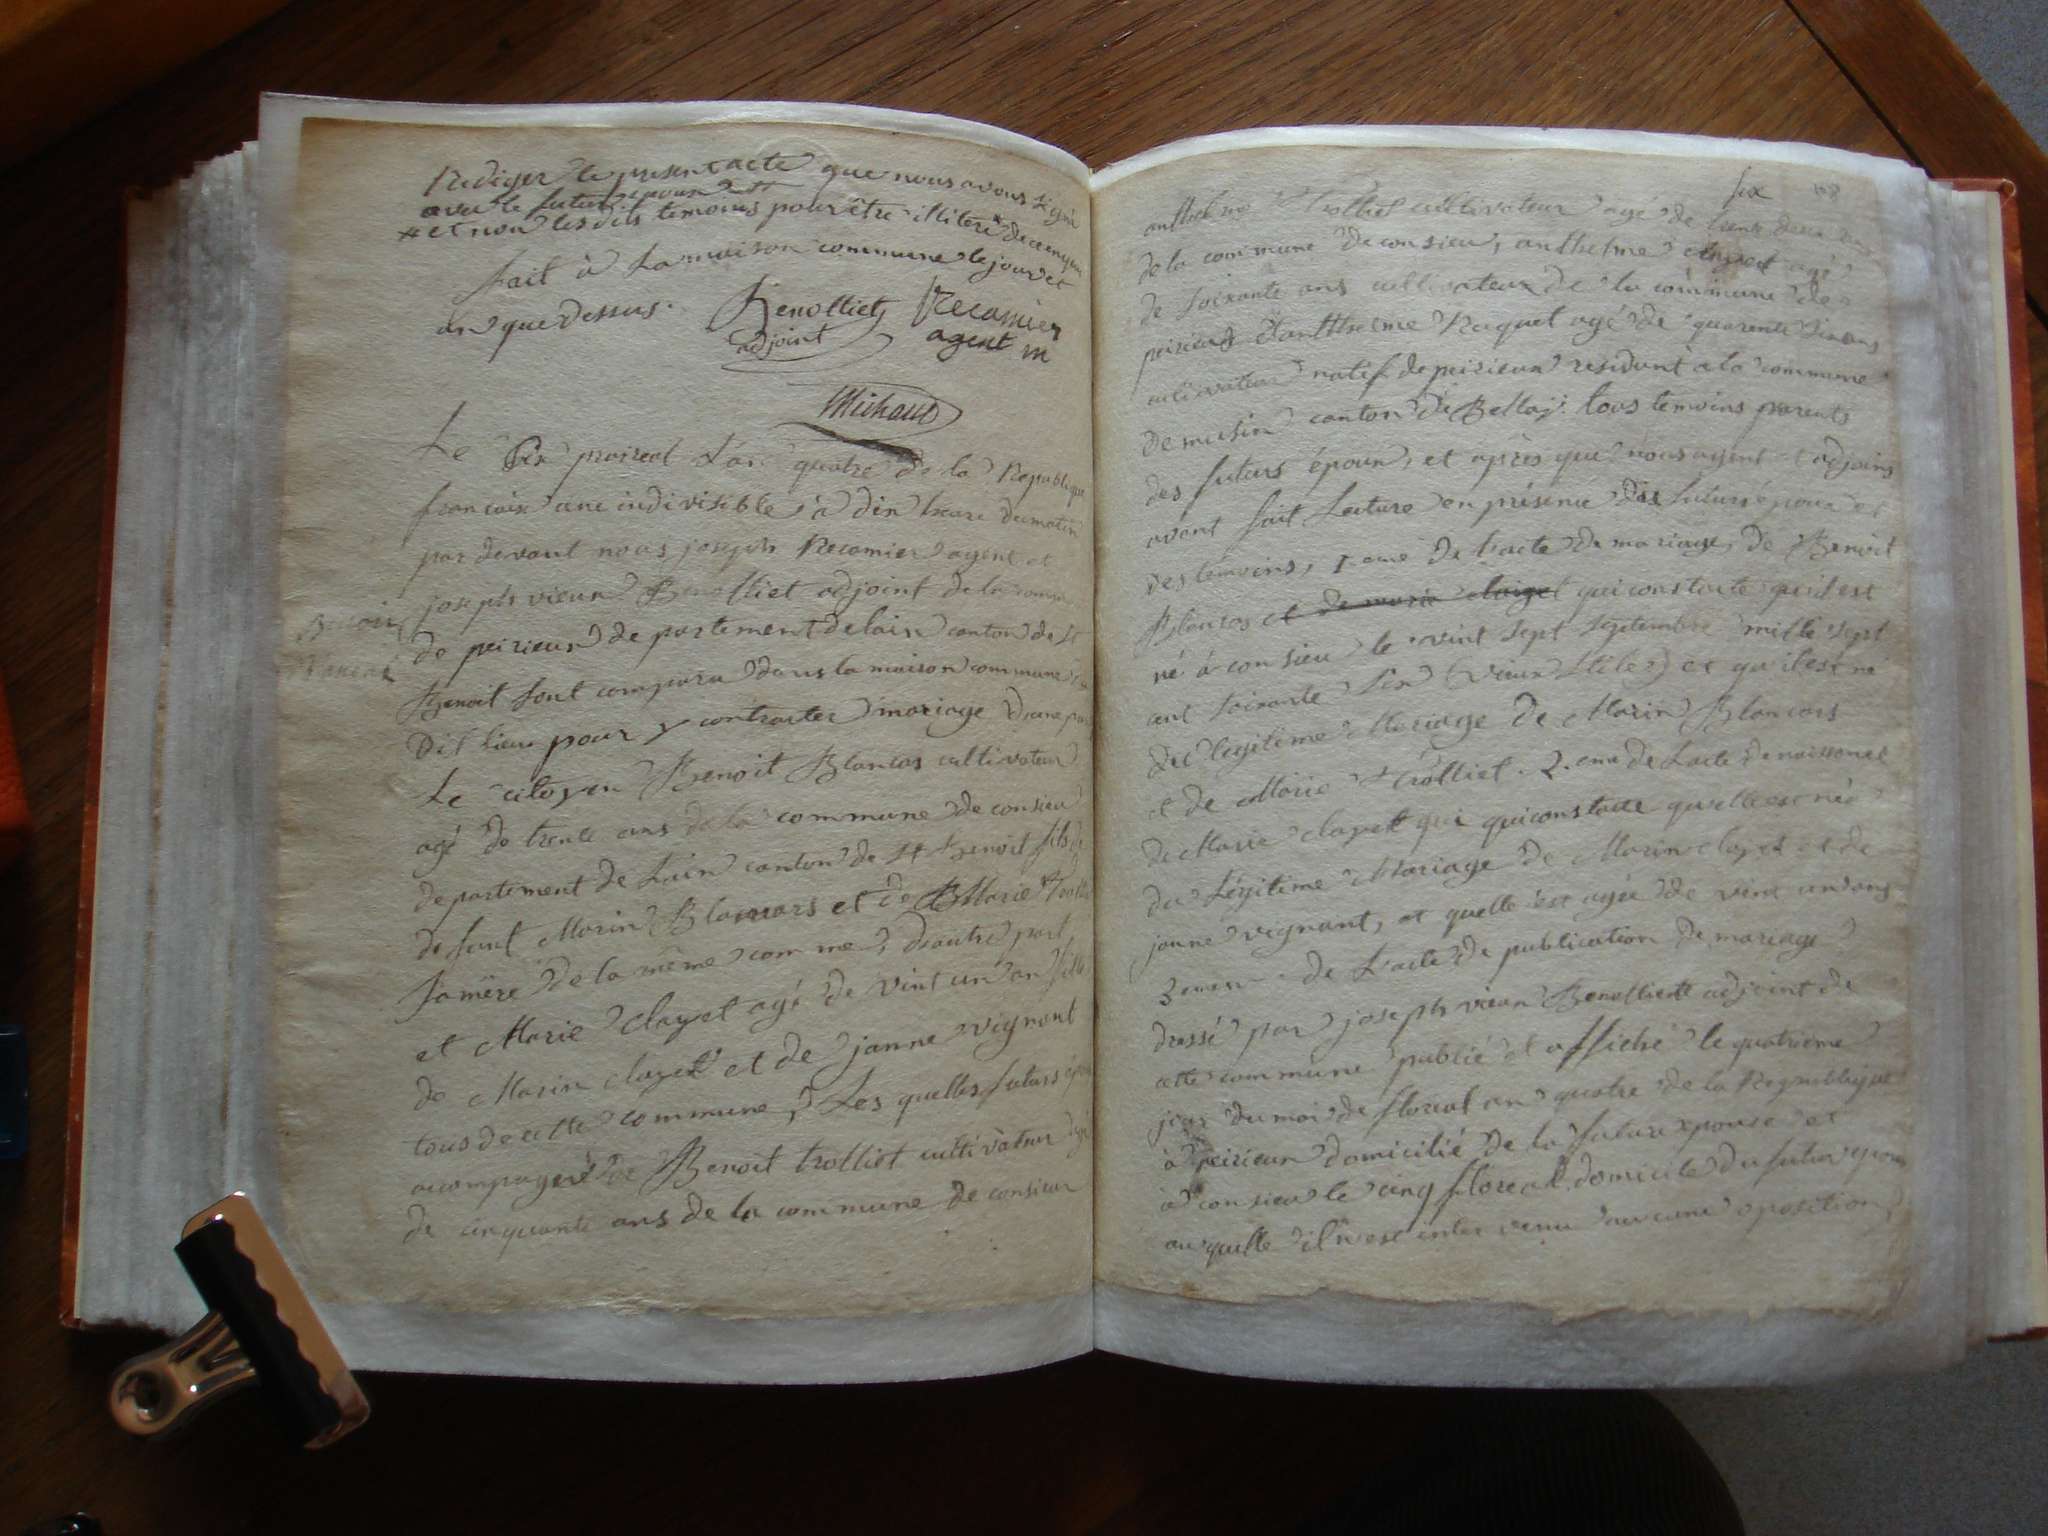 Rediger le present acte que nous avons signé
avec le futur epoux
# et non lesdits temoins pour être illitere de ce enquis
fait à la maison commune le jour et
an que dessus. Benolliet Recamier
adjoint agent m
Michaud
Le dix praireal l'an quatre de la Republique
francaise une indivisible à dix heure du matin
par devant nous joseph Recamier agent et
joseph vieux Benolliet adjoint de la comune
de peirieux departement de lain canton de St
Benoit sont comparu dans la maison commune du
dit lieu pour y contracter mariage d'une part
Le citoyen Benoit Blancas cultivateur
agé de trente ans de la commune de consieu
departement de Lain canton de St Benoit fils de
de faut Marin Blancars et de Marie Trolliet
sa mère de la même comme, d'autre part
et Marie clayet agé de vint un an fille
de Marin clayet et de janne vignant
tous de cette commune, Les quelles futurs époux
acompagné de Benoit trolliet cultivateur agé
de cinquante ans de la commune de consieux
six
anthelme Trolliet cultivateur agé de trente deux ans
de la commune de consieu, anthelme clayet agé
de soixante ans cultivateur de la commune de
peirieux & anthelme Raquet agé de quarente six ans
cultivateur natif de peirieux residant à la commune
de musin canton de Bellaÿ. tous temoins parents
des futurs époux, et après que nous agent et adjoins
avont fait Lecture en présence des futurs epoux et
des temoins, 1 eme de l'acte de mariage, de Benoit
Blancas et de marie claiyet qui constate qu'il est
né à consieu le vint sept septembre mille sept
cent soixante six (vieux stile) et qu'il est né
de legitime Mariage de Marin Blancars
et de Marie Trolliet. 2. eme de l'acte de naissance
de Marie clayet qui quiconstate quelle est née
du Légitime Mariage de Marin clayet et de
janne vignant, et quelle est agée de vint un ans
3 emen de l'acte de publication de mariage
dressé par joseph vieux Benolliet adjoint de
cette commune publié et affiché le quatrieme
jour du moi de floreal an quatre de la Republique
à peirieux domicilié de la future epouse et
à consieu le cinq floreal domicile du futur epoux
au quelle il n'est inter venu aucune oposition